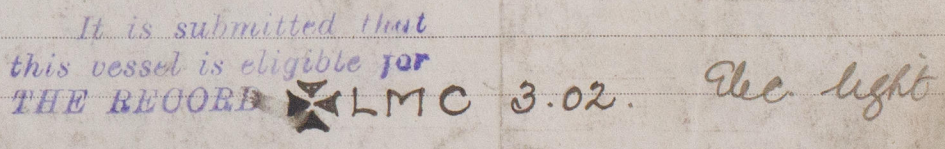 It is submitted that
this vessel is eligible for
THE RECORD ✠ LMC 3.02. Elec. light